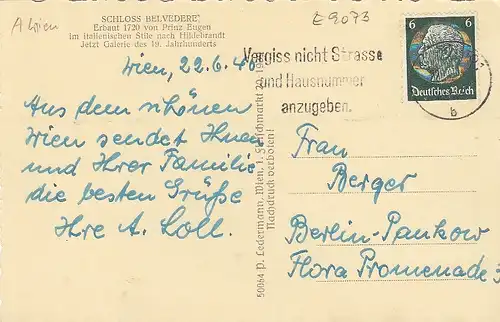 A Wien
SCHLOSS BELVEDERE
Erbaut 1720 von Prinz Eugen
im italienischen Stile nach Hildebrandt
Jetzt Galerie des 19. Jahrhunderts
Wien, 22.6.40
Aus dem schönen
Wien sendet Ihnen
und Ihrer Familie
die besten Grüße
Ihre A. Loll.
50064 P. Ledermann, Wien, I. Fleischmarkt
Nachdruck verboten!
E9073
Vergiss nicht Strasse
und Hausnummer
anzugeben.
6 6
Deutsches Reich
b
Frau
Berger
Berlin-Pankow
Flora Promenade